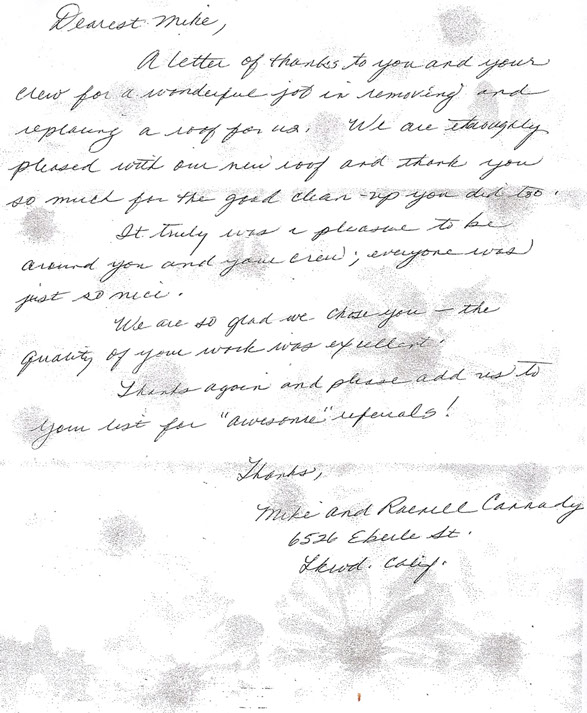 Dearest Mike,
A letter of thanks to you and your
crew for a wonderful job in removing and
replacing a roof for us. We are thoroughly
pleased with our new roof and thank you
so much for the good clean-up you did too.
It truly was a pleasure to be
around you and your crew; everyone was
just so nice.
We are so glad we chose you – the
quality of your work was excellent.
Thanks again and please add us to
your list for "awesome" referrals!
Thanks,
Mike and Raenell Cannady
6526 Eberle St.
Lkwd. Calif.